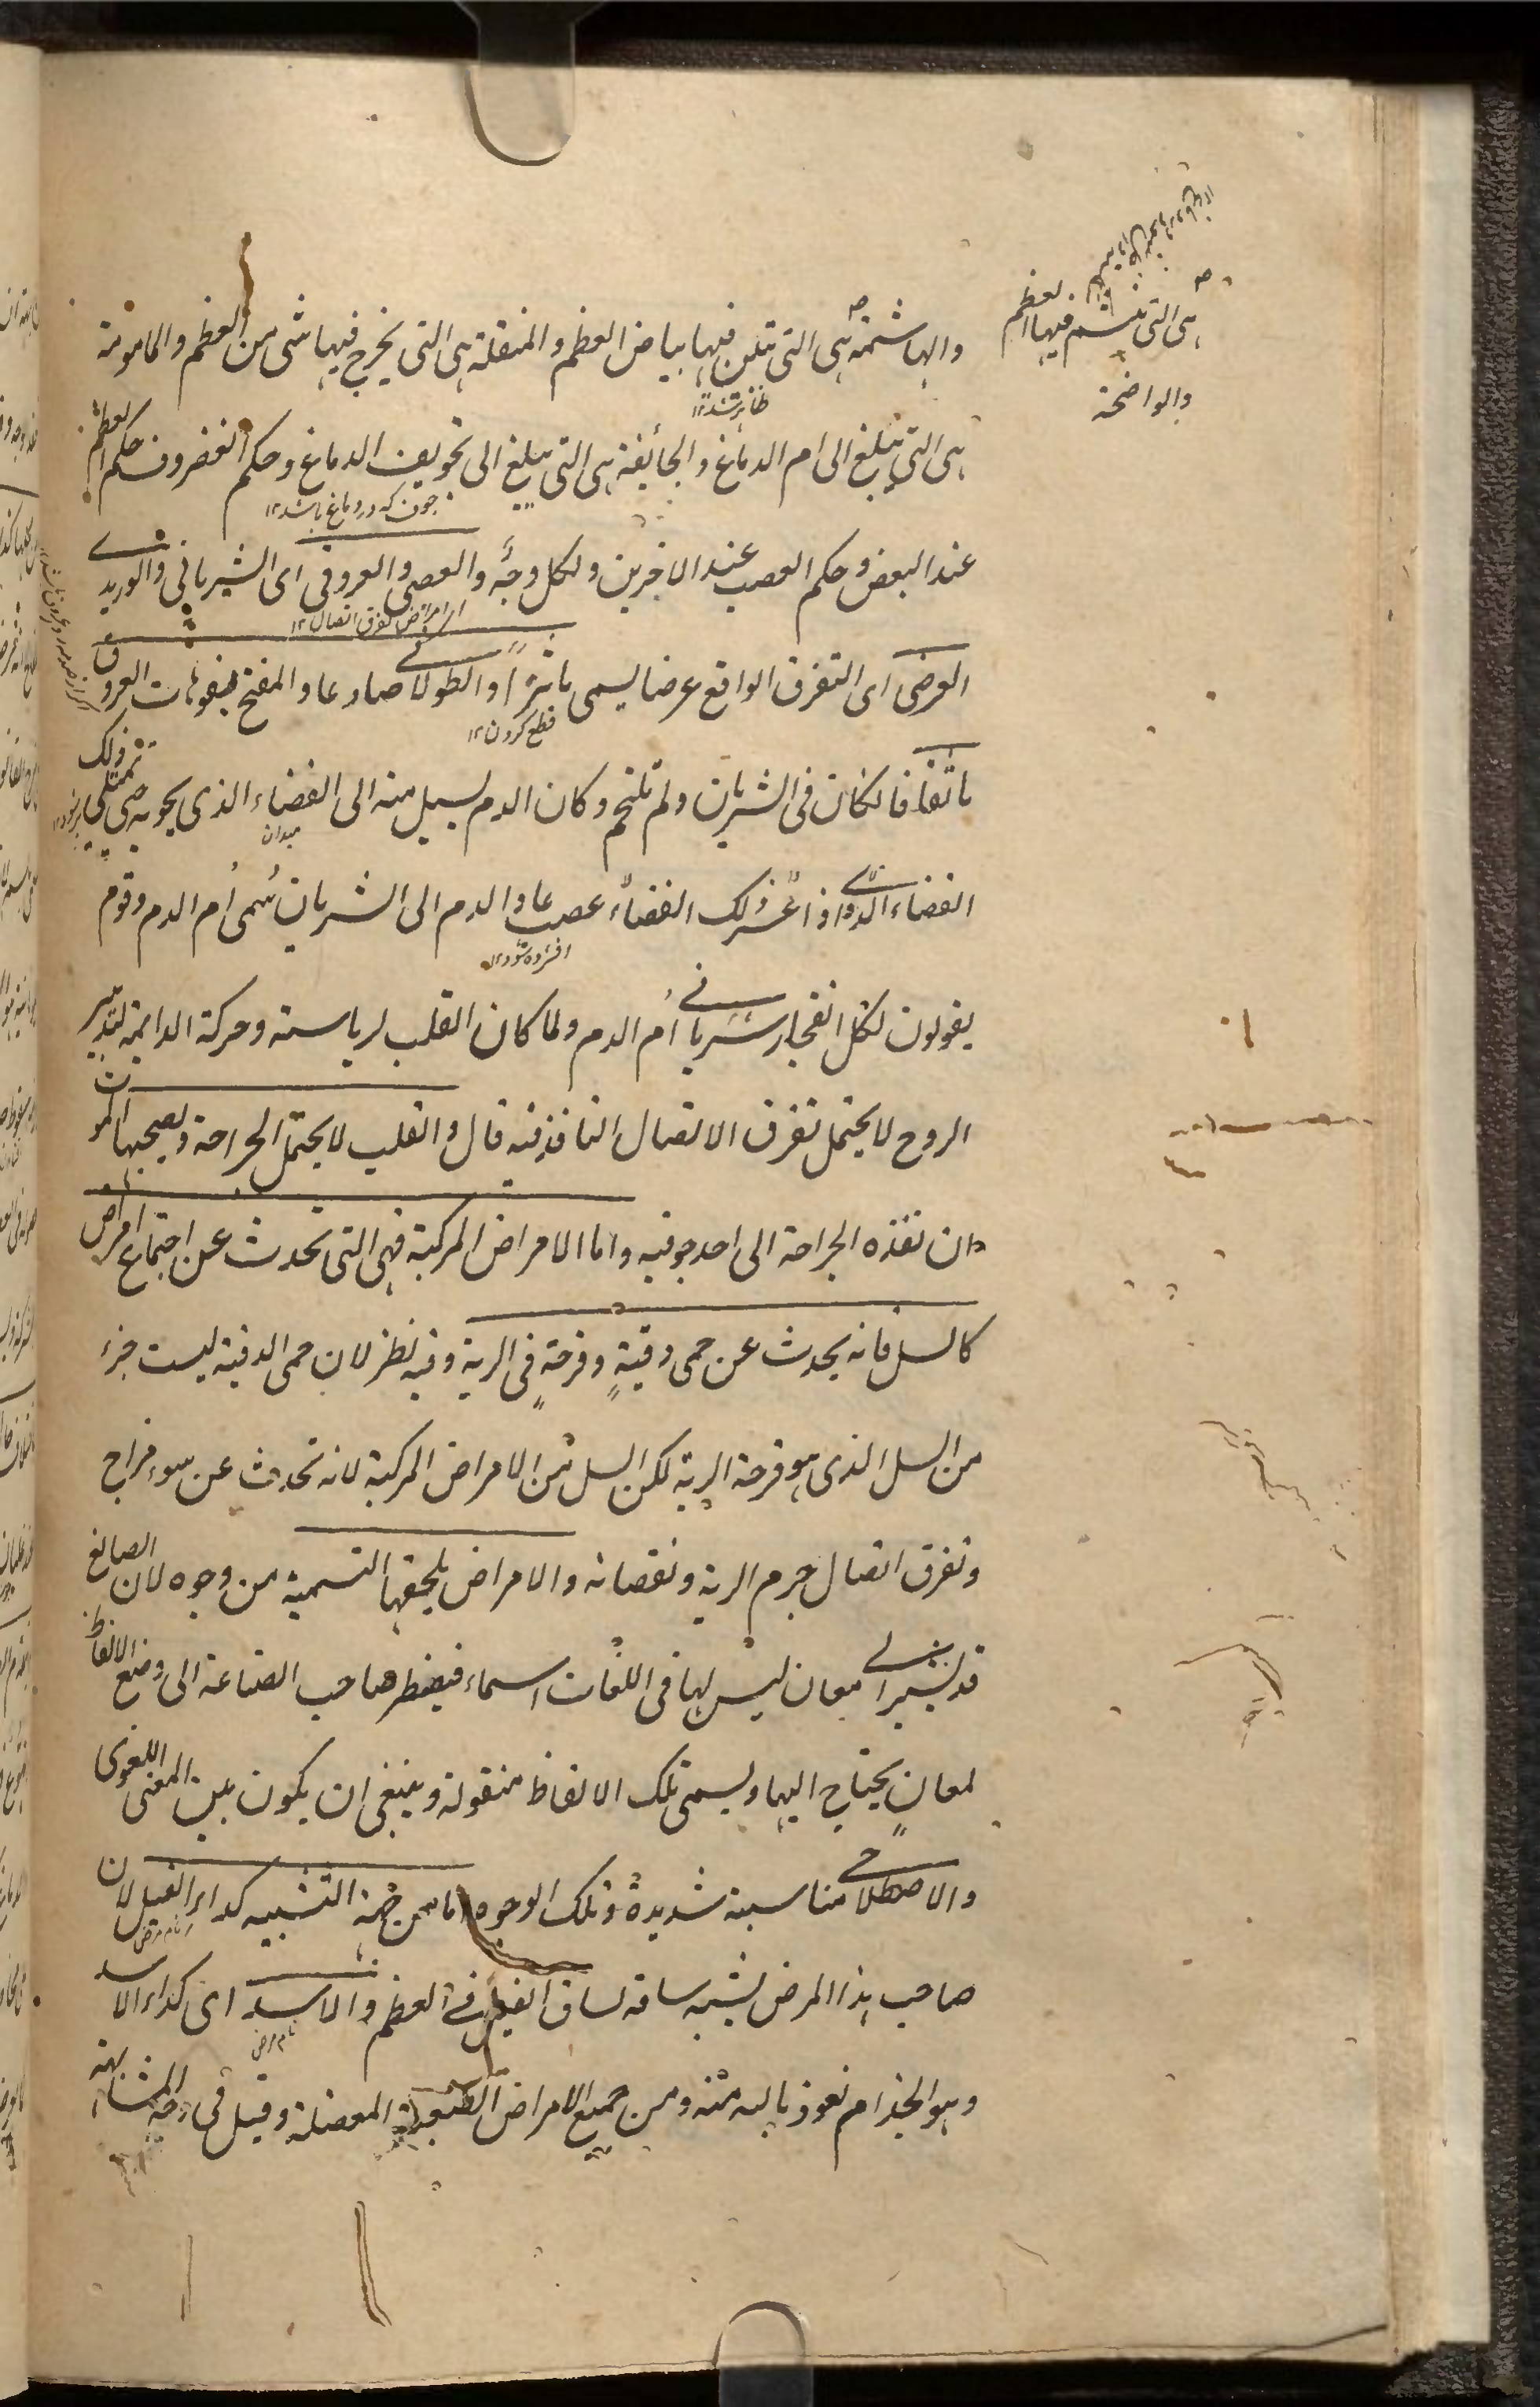 هى التى تنهشم فيها العظم
والواضحة
والهاشمة هى التى تبين فيها بياض العظم والمنقلة هى التى يخرج فيها شى من العظم والمامومة
ظاهر شد ١٢
هى التى تبلغ الى ام الدماغ والجائفة هى التى يبلغ الى تجويف الدماغ وحكم الغضروف حكم العظم
جوف كه در دماغ باشد ١٢
عند البعض وحكم العصب عند الاخرين ولكل وجه والعصبى والعروقى اى الشريانى والوريدى
از امراض تفرق اتصال ١٢
العرضى اى التفرق الواقع عرضا يسمى باترا والطولانى صادعا والمفتح لفوهات العروق
قطع كردن ١٢
باثقا فا لكان فى الشريان ولم تلتحم وكان الدم يسيل منه الى الفضاء الذى يحويه حتى يمتلى ذلك
ميدان
الفضاء الذى اذا غمز ذلك الفضاء عصب عاد الدم الى الشريان سُمى اُم الدم وقوم
افشرده شود ١٢
يقولون لكل انفجار شريانى اُم الدم ولما كان القلب لرياسته وحركة الدايمة لتدبير
الروح لا يحتمل تفرق الاتصال النافذ فيه قال والقلب لا يحتمل الجراحة ويصحبها الموت
وان نفذه الجراحة الى احد جوفيه واما الامراض المركبة فهى التى تحدث عن اجتماع امراض
كالسل فانه يحدث عن حمى دقيةٍ وقرحةٍ فى الرية وفيه نظر لان حمى الدقية ليست جزء
من السل الذى هو قرحة الرية لكن السل من الامراض المركبة لانه تحدث عن سوء مزاج
وتفرق اتصال جرم الرية ونقصانه والامراض يلحقها التسمية من وجوه لان الصانع
قد يشير الى معان ليس لها فى اللغات اسماء فيضطر صاحب الصناعة الى وضع الالفاظ
لمعانٍ يحتاج اليها ويسمى تلك الالفاظ منقولة وينبغى ان يكون بين المعنى اللغوى
والاصطلاحى مناسبة شديدة وتلك الوجوه اما من جهة التشبيه كداء الفيل لان
نام مرض
صاحب هذا المرض يشبه ساقه لساق الفيل فى العظم والاسد اى كداء الاسد
نام مرض
وهو الجذام نعوذ بالله منه ومن جميع الامراض الصعبة المعضلة وقيل فى وجه المشابهة